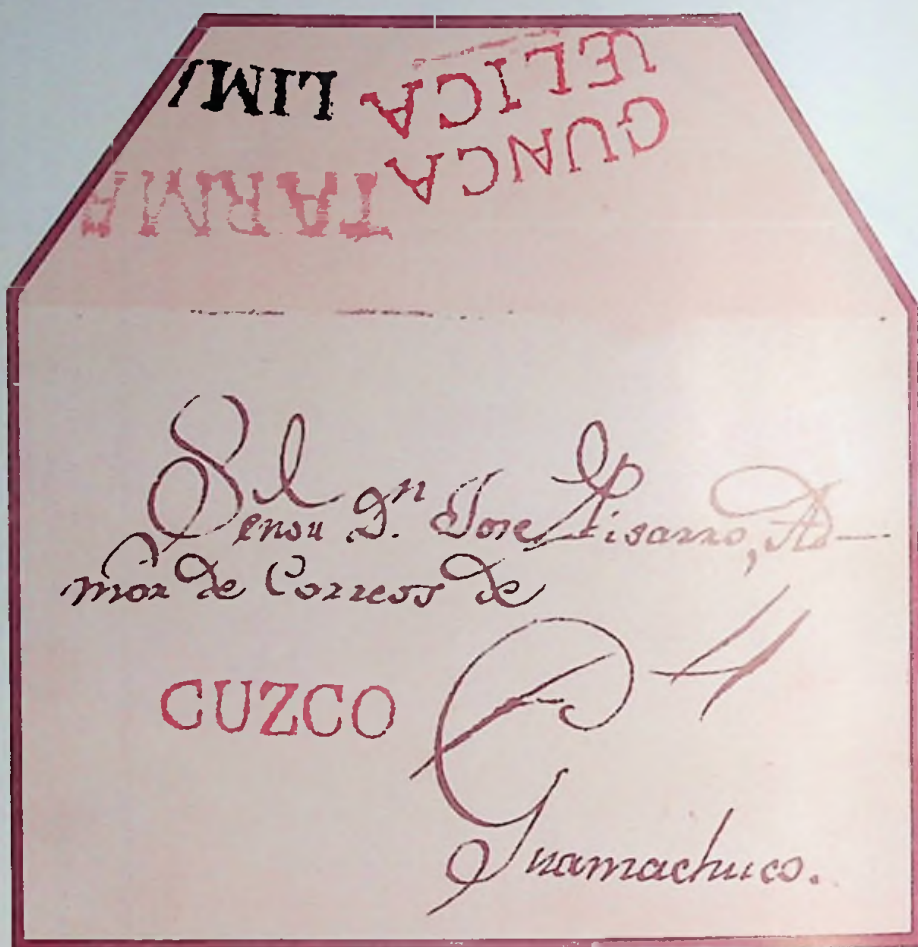 LIMA
GUANCA
VELICA
TARMA
Dn. Jose Pisarro, Ad-
mor de Correos de
4
CUZCO
Guamachuco.